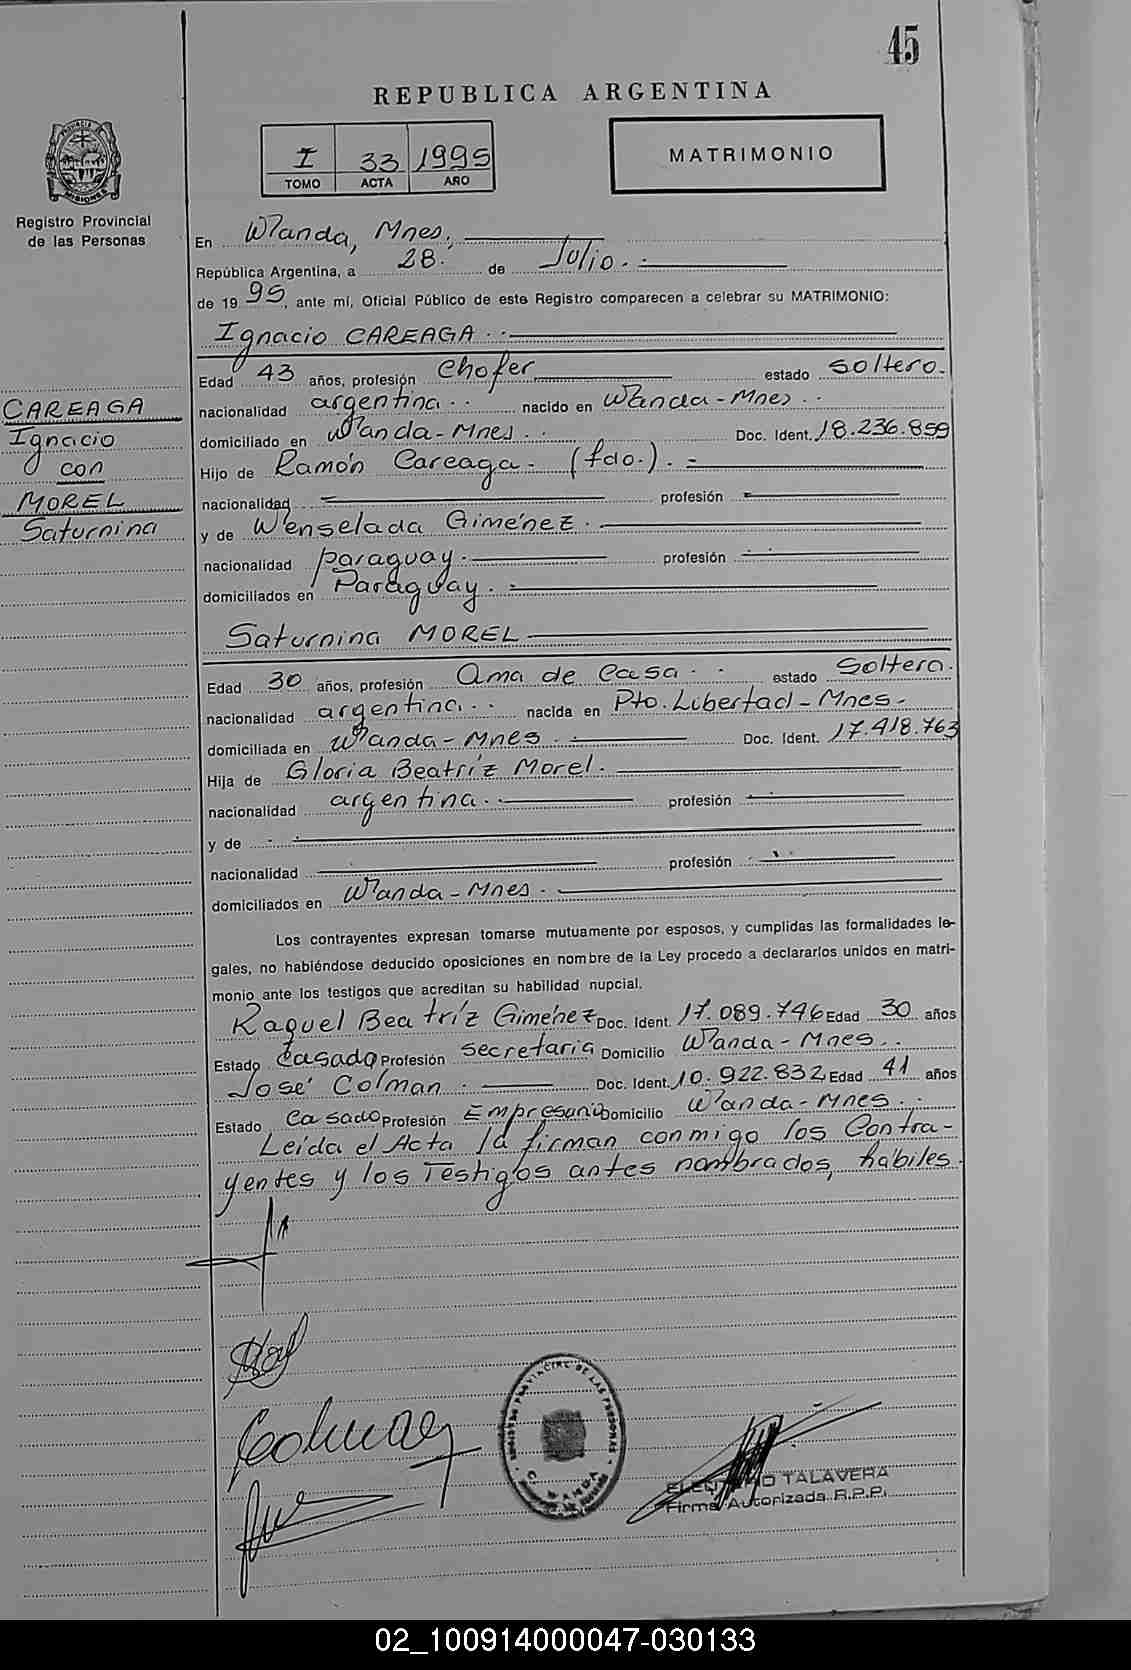 45
REPUBLICA ARGENTINA
I 33 1995
TOMO ACTA AÑO
MATRIMONIO
Registro Provincial
de las Personas
En Wanda, Mnes.,
República Argentina, a 28 de Julio.
de 19 95, ante mí, Oficial Público de este Registro comparecen a celebrar su MATRIMONIO:
Ignacio CAREAGA
Edad 43 años, profesión Chofer estado soltero.
nacionalidad argentina nacido en Wanda - Mnes
domiciliado en Wanda - Mnes. Doc. Ident. 18.236.859
Hijo de Ramón Careaga. (fdo.).
nacionalidad profesión
y de Wenselada Giménez.
nacionalidad paraguay. profesión
domiciliados en Paraguay.
CAREAGA
Ignacio
con
MOREL
Saturnina
Saturnina MOREL
Edad 30 años, profesión Ama de Casa estado Soltera.
nacionalidad argentina nacida en Pto. Libertad - Mnes.
domiciliada en Wanda - Mnes. Doc. Ident. 17.418.763
Hija de Gloria Beatríz Morel.
nacionalidad argentina. profesión
y de
nacionalidad profesión
domiciliados en Wanda - Mnes.
Los contrayentes expresan tomarse mutuamente por esposos, y cumplidas las formalidades le-
gales, no habiéndose deducido oposiciones en nombre de la Ley procedo a declararlos unidos en matri-
monio ante los testigos que acreditan su habilidad nupcial.
Raquel Beatríz Giménez Doc. Ident. 17.089.746 Edad 30 años
Estado Casada Profesión secretaria Domicilio Wanda - Mnes.
José Colman. Doc. Ident. 10.922.832 Edad 41 años
Estado Casado Profesión Empresario Domicilio Wanda - Mnes.
Leída el Acta la firman conmigo los Contra-
yentes y los Testigos antes nombrados, hábiles.
Colman
TALAVERA
Firma Autorizada R.P.P.
02_100914000047-030133